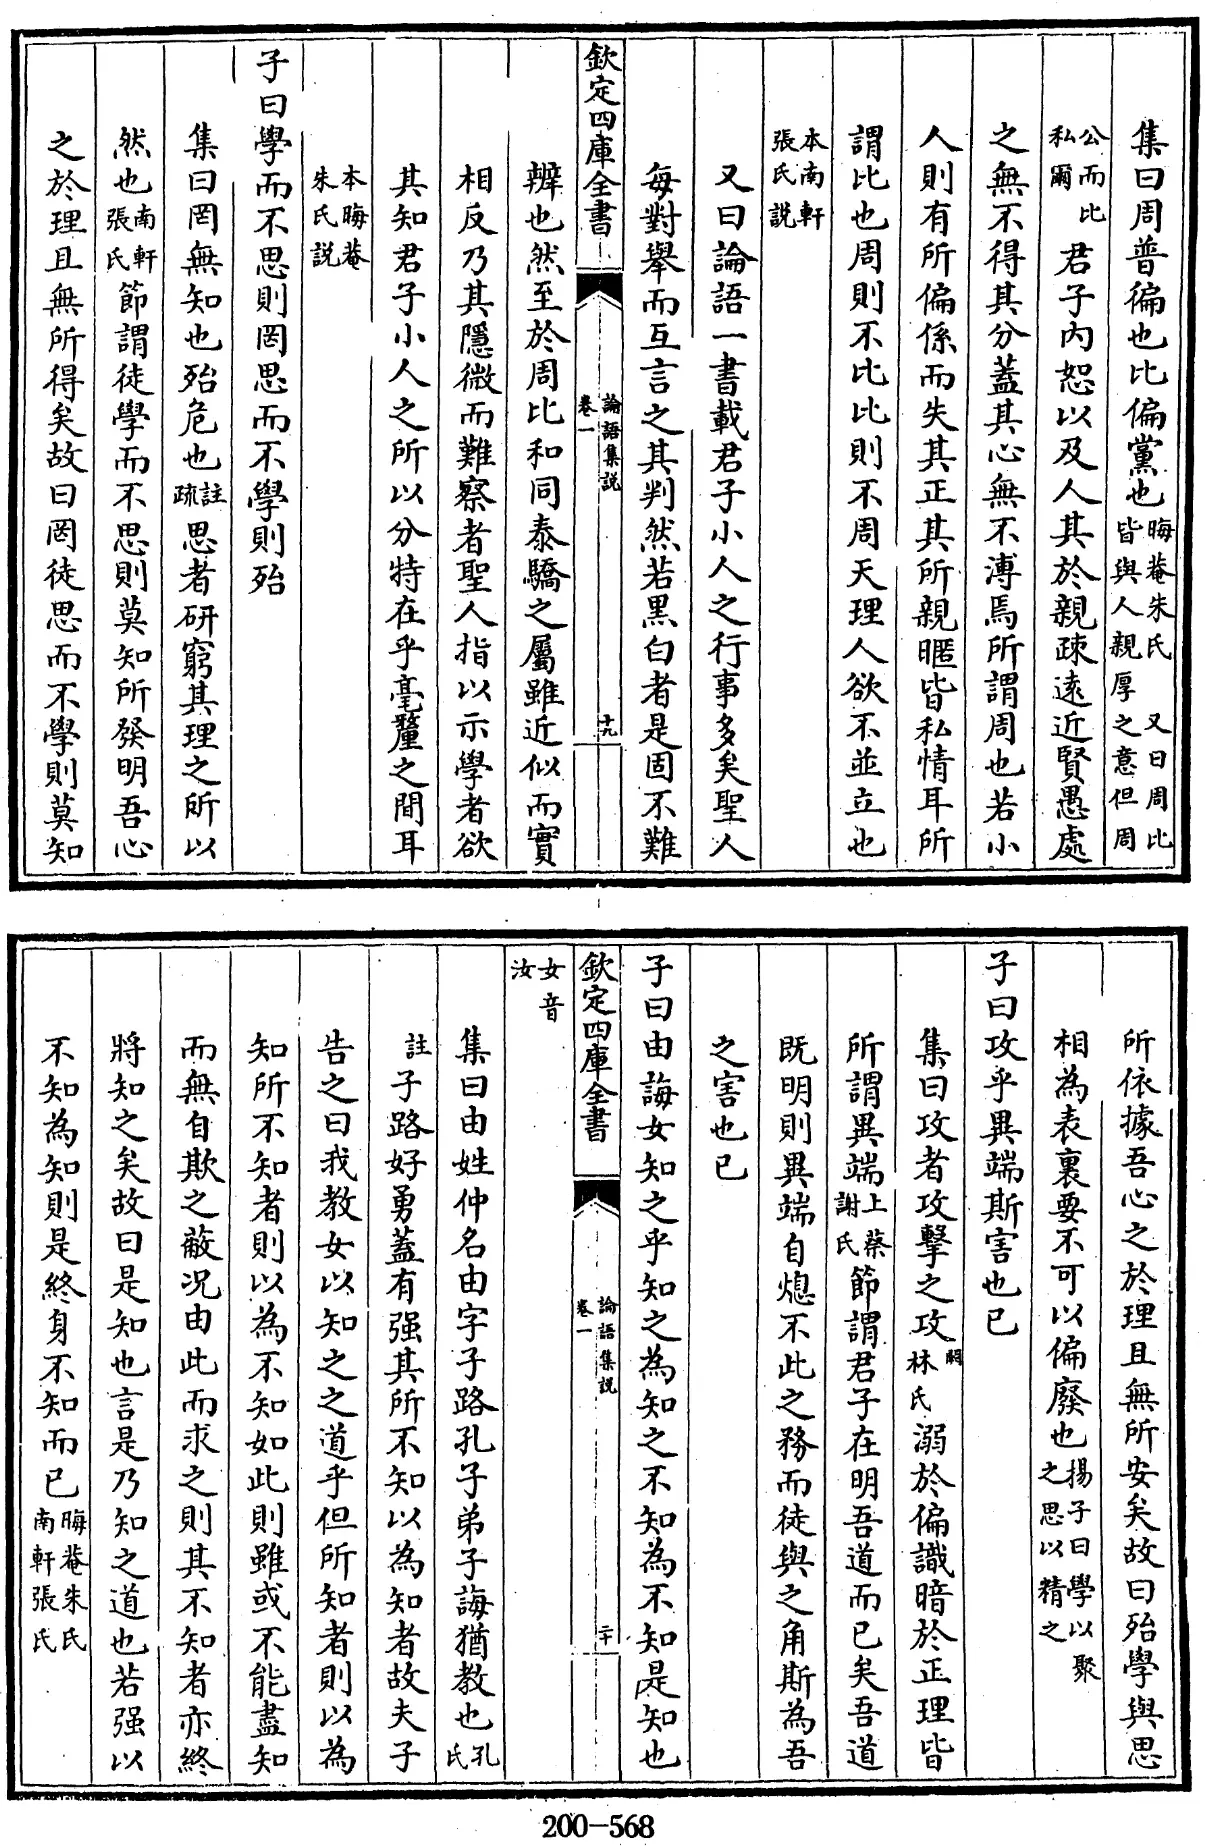 集曰周普徧也比偏黨也晦菴朱氏 又曰周比皆與人親厚之意但周
公而比私爾君子内恕以及人其於親疎逺近賢愚處
之無不得其分蓋其心無不溥焉所謂周也若小
人則有所偏係而失其正其所親暱皆私情耳所
謂比也周則不比比則不周天理人欲不並立也
本南軒張氏説
又曰論語一書載君子小人之行事多矣聖人
每對舉而互言之其判然若黒白者是固不難
欽定四庫全書
論語集説
卷一
十九
辨也然至於周比和同泰驕之屬雖近似而實
相反乃其隱微而難察者聖人指以示學者欲
其知君子小人之所以分特在乎毫釐之間耳
本晦菴朱氏説
子曰學而不思則罔思而不學則殆
集曰罔無知也殆危也註疏思者研窮其理之所以
然也南軒張氏節謂徒學而不思則莫知所發明吾心
之於理且無所得矣故曰罔徒思而不學則莫知
所依據吾心之於理且無所安矣故曰殆學與思
相為表裏要不可以偏廢也揚子曰學以聚之思以精之
子曰攻乎異端斯害也已
集曰攻者攻擊之攻闕林氏溺於偏識暗於正理皆
所謂異端上蔡謝氏節謂君子在明吾道而已矣吾道
既明則異端自熄不此之務而徒與之角斯為吾
之害也已
子曰由誨女知之乎知之為知之不知為不知是知也
欽定四庫全書
論語集説
卷一
二十
女音汝
集曰由姓仲名由字子路孔子弟子誨猶教也孔氏
註子路好勇蓋有强其所不知以為知者故夫子
告之曰我教女以知之之道乎但所知者則以為
知所不知者則以為不知如此則雖或不能盡知
而無自欺之蔽况由此而求之則其不知者亦終
將知之矣故曰是知也言是乃知之道也若强以
不知為知則是終身不知而已晦菴朱氏南軒張氏
200-568